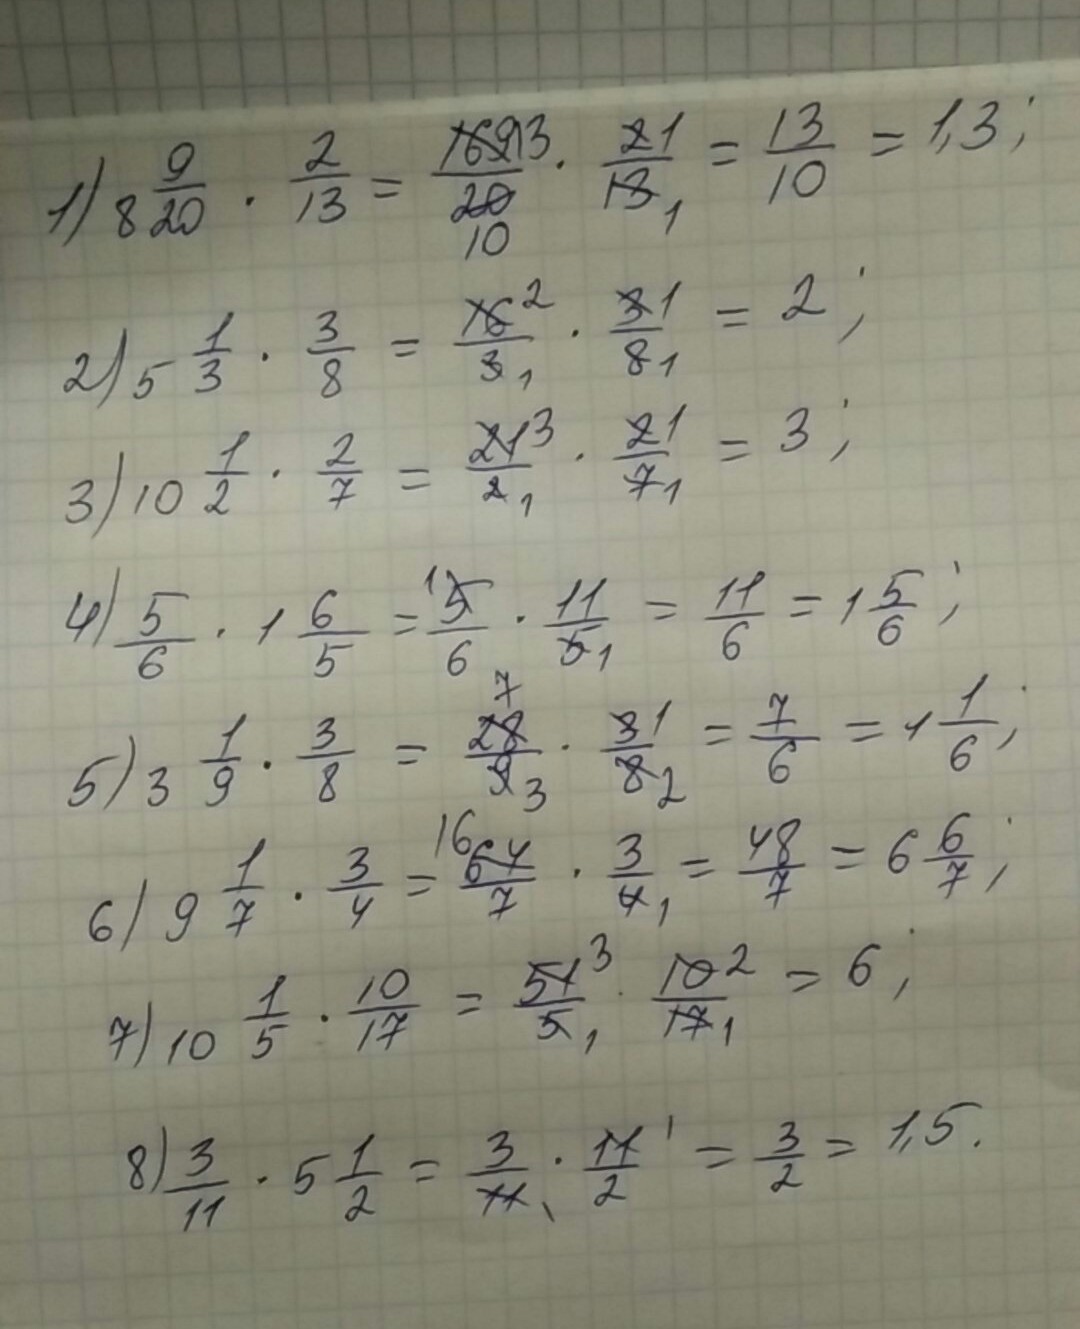 1) 8 9/20 · 2/13 = 169 13/20 10 · 2 1/13 1 = 13/10 = 1,3;
2) 5 1/3 · 3/8 = 16 2/3 1 · 3 1/8 1 = 2;
3) 10 1/2 · 2/7 = 21 3/2 1 · 2 1/7 1 = 3;
4) 5/6 · 1 6/5 = 1 5/6 · 11/5 1 = 11/6 = 1 5/6;
5) 3 1/9 · 3/8 = 28 7/9 3 · 3 1/8 2 = 7/6 = 1 1/6;
6) 9 1/7 · 3/4 = 16 64/7 · 3/4 1 = 48/7 = 6 6/7;
7) 10 1/5 · 10/17 = 51 3/5 1 · 10 2/17 1 = 6;
8) 3/11 · 5 1/2 = 3/11 1 · 11 1/2 = 3/2 = 1,5.